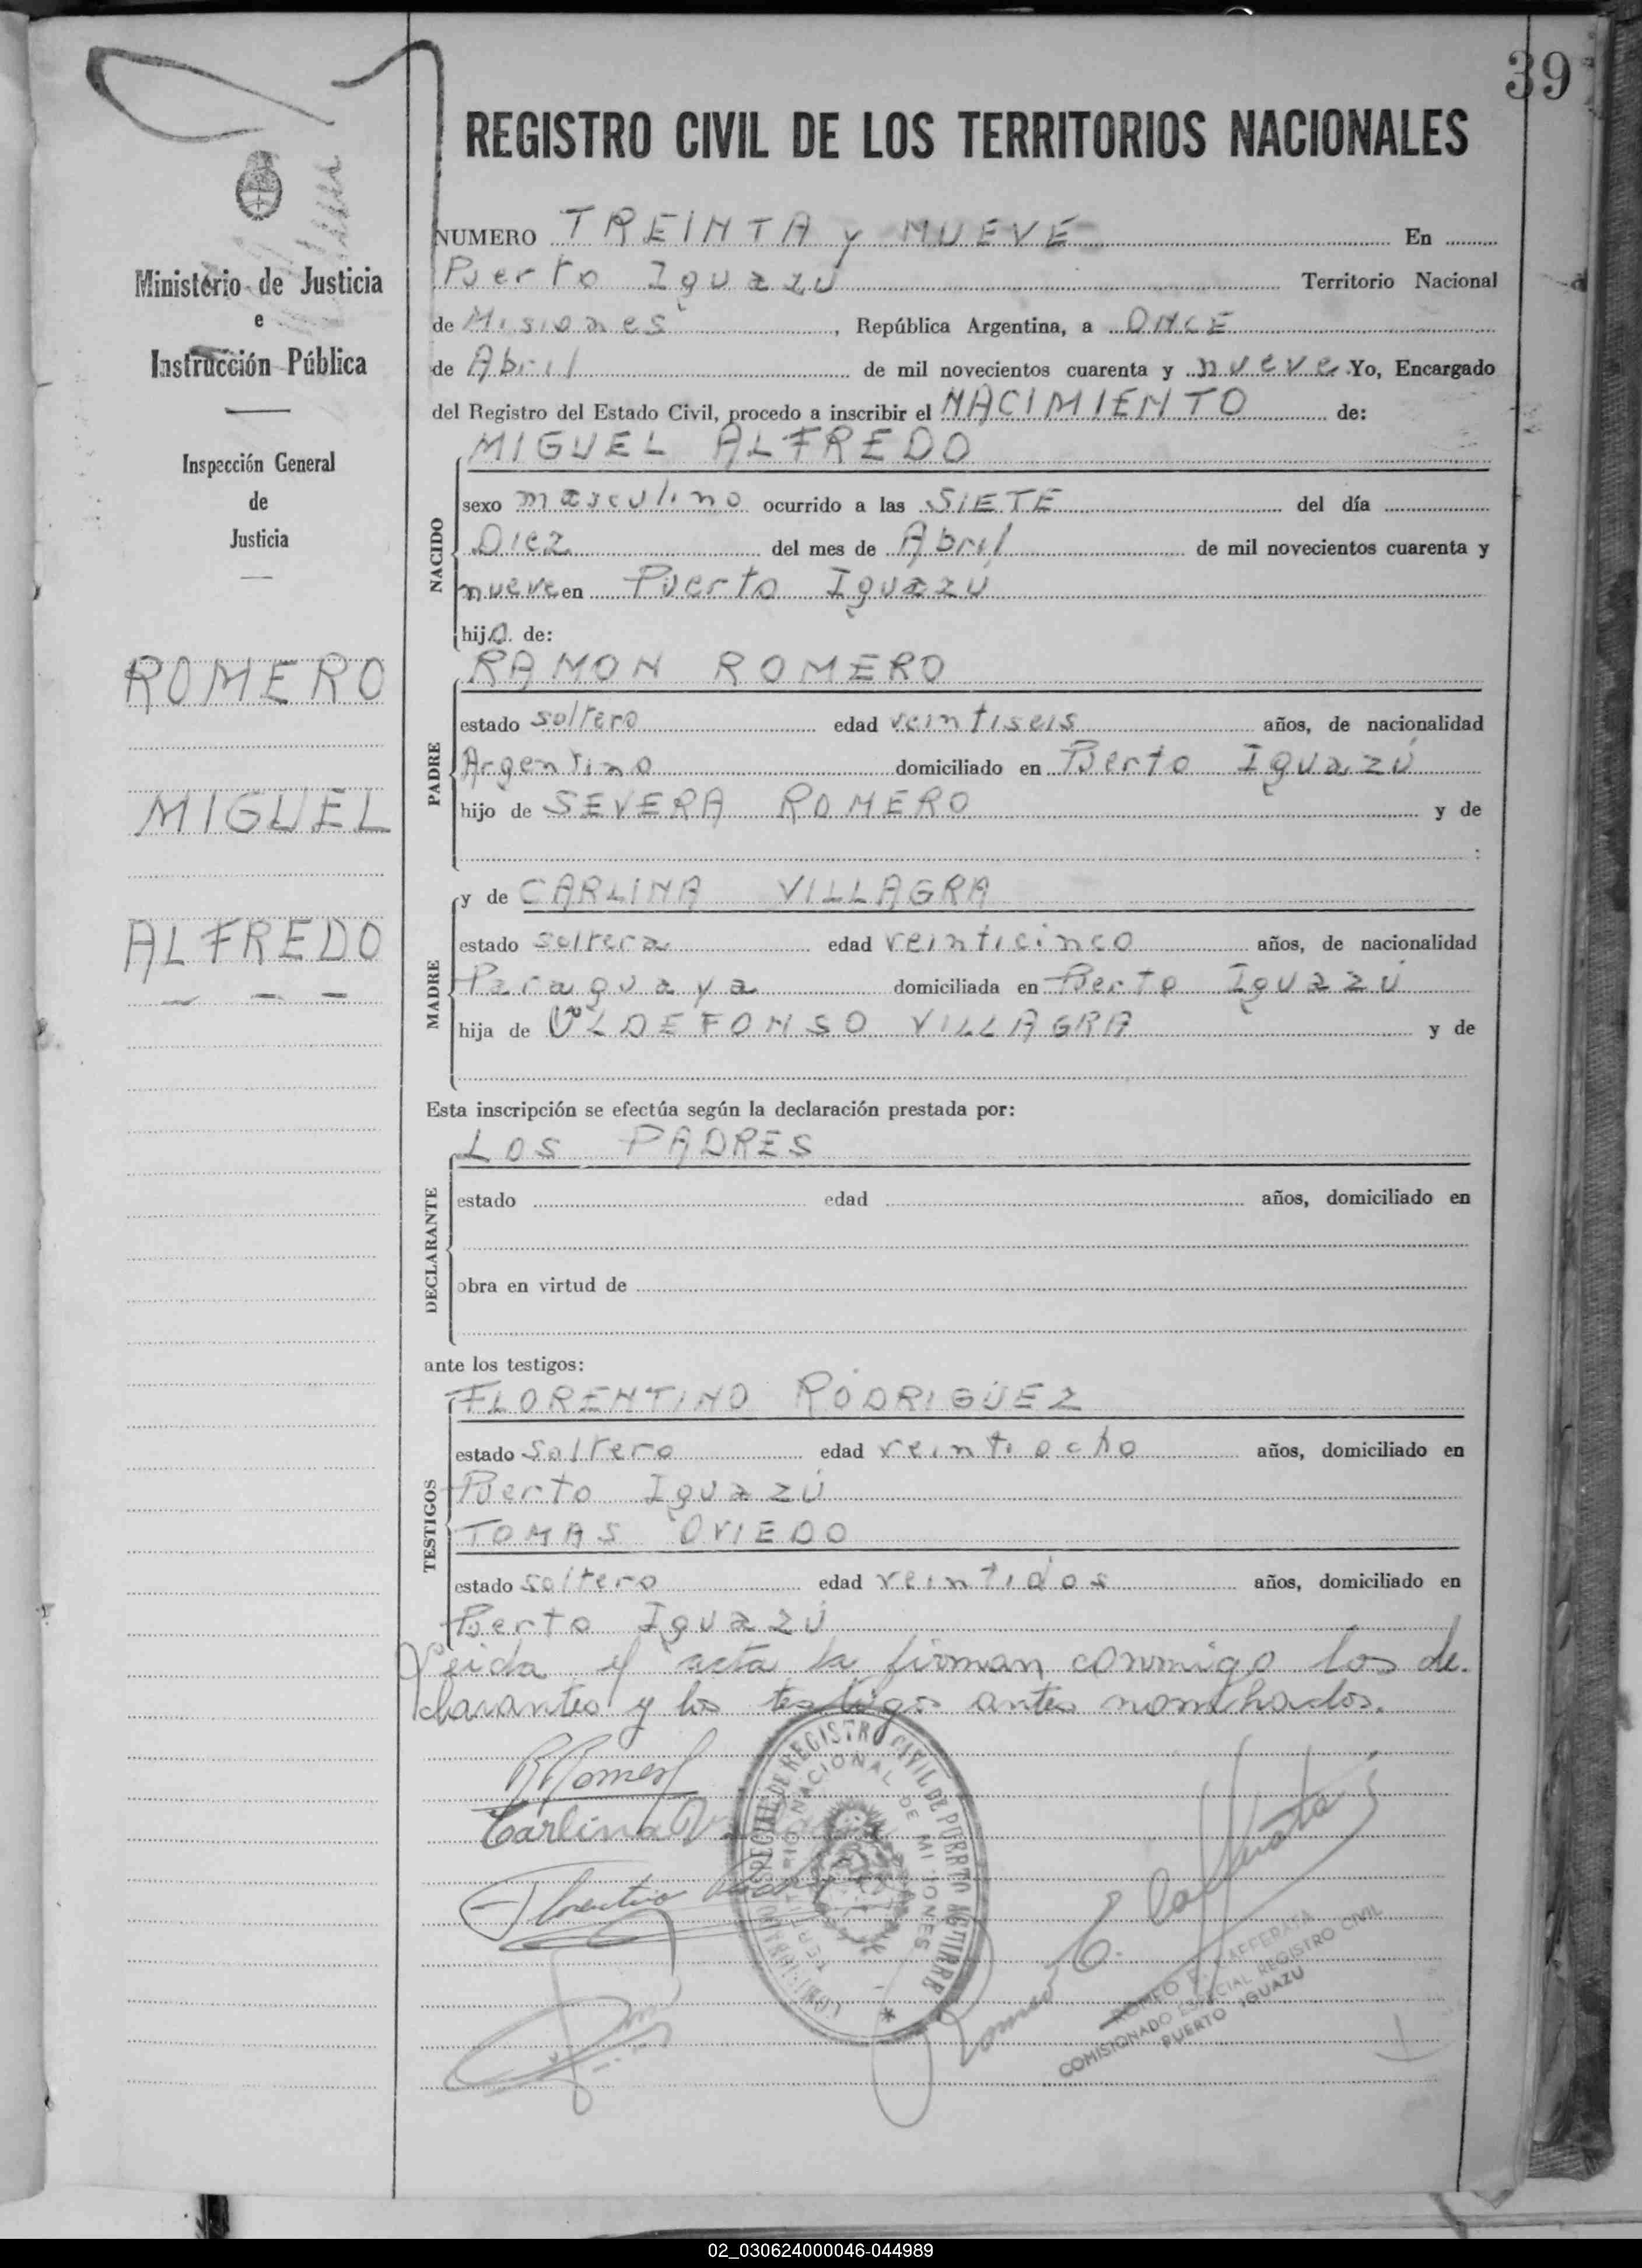 39
REGISTRO CIVIL DE LOS TERRITORIOS NACIONALES
Ministerio de Justicia
e
Instrucción Pública
Inspección General
de
Justicia
ROMERO
MIGUEL
ALFREDO
NUMERO TREINTA y NUEVE En
Puerto Iguazú Territorio Nacional
de Misiones, República Argentina, a ONCE
de Abril de mil novecientos cuarenta y nueve Yo, Encargado
del Registro del Estado Civil, procedo a inscribir el NACIMIENTO de:
NACIDO
MIGUEL ALFREDO
sexo masculino ocurrido a las SIETE del día
Diez del mes de Abril de mil novecientos cuarenta y
nueve en Puerto Iguazú
hijo de:
PADRE
RAMON ROMERO
estado soltero edad veintiseis años, de nacionalidad
Argentino domiciliado en Puerto Iguazú
hijo de SEVERA ROMERO y de
:
MADRE
y de CARLINA VILLAGRA
estado soltera edad veinticinco años, de nacionalidad
Paraguaya domiciliada en Puerto Iguazú
hija de VLDEFONSO VILLAGRA y de
Esta inscripción se efectúa según la declaración prestada por:
DECLARANTE
LOS PADRES
estado edad años, domiciliado en
obra en virtud de
ante los testigos:
TESTIGOS
FLORENTINO RODRIGUEZ
estado soltero edad veintiocho años, domiciliado en
Puerto Iguazú
TOMAS OVIEDO
estado soltero edad veintidos años, domiciliado en
Puerto Iguazú
Leida el acta la firman conmigo los de-
clarantes y los testigos antes nombrados.
R Romero
Carlina
Florentino
Romeo E. Cafferata
ESPECIAL DE REGISTRO CIVIL DE PUERTO AGUIRRE
TERRITORIO NACIONAL DE MISIONES
ROMEO E. CAFFERATA
COMISIONADO ESPECIAL REGISTRO CIVIL
PUERTO IGUAZU
02_030624000046-044989